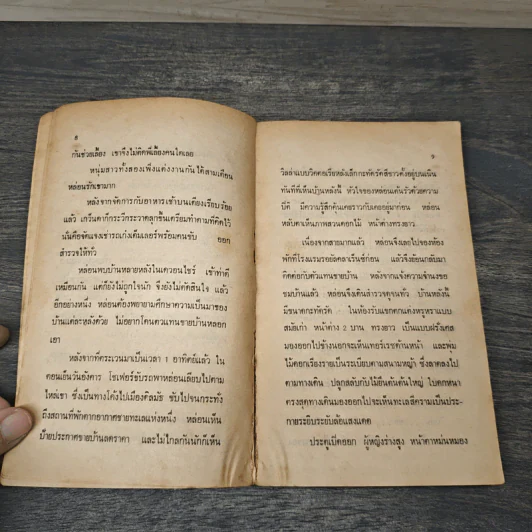 ๘
กันช่วยเลี้ยง เขาจึงไม่คิดพึ่งเลี้ยงคนใดเลย
หนุ่มสาวทั้งสองเพิ่งแต่งงานกันได้สามเดือน
หล่อนรักเขามาก
หลังจากจัดการกับอาหารเช้าบนเตียงเรียบร้อย
แล้ว เกว็นดาก็กระวีกระวาดลุกขึ้นเตรียมทำตามที่คิดไว้
นั่นคือจัดแจงเช่ารถเก่งเด็มเลอร์พร้อมคนขับ ออก
สำรวจให้ทั่ว
หล่อนพบบ้านหลายหลังในเดวอนไชร์ เข้าท่าดี
เหมือนกัน แต่ก็ยังไม่ถูกใจนัก จึงยังไม่ตัดสินใจ แล้ว
อีกอย่างหนึ่ง หล่อนต้องพยายามศึกษาความเป็นมาของ
บ้านแต่ละหลังด้วย ไม่อยากโดนตัวแทนขายบ้านหลอก
เอา
หลังจากที่ตระเวนมาเป็นเวลา ๑ อาทิตย์แล้ว ใน
ตอนเย็นวันอังคาร โชเฟอร์ขับรถพาหล่อนเลียบไปตาม
ไหล่เขา ซึ่งเป็นทางโค้งไปเมืองดัลมัธ ขับไปจนกระทั่ง
ถึงสถานที่พักตากอากาศชายทะเลแห่งหนึ่ง หล่อนเห็น
ป้ายประกาศขายบ้านลดราคา และไม่ไกลกันนักก็เห็น
๙
วิลล่าแบบวิคตอเรียหลังเล็กกะทัดรัดสีขาวตั้งอยู่บนเนิน
ทันทีที่เห็นบ้านหลังนี้ หัวใจของหล่อนเต้นรัวด้วยความ
ปิติ มีความรู้สึกคุ้นเคยราวกับเคยอยู่มาก่อน หล่อน
หลับตาเห็นภาพสวนดอกไม้ หน้าต่างทรงยาว
เนื่องจากสายมากแล้ว หล่อนจึงเลยไปจองห้อง
พักที่โรงแรมรอยัลคลาเร็นซ์ก่อน แล้วจึงย้อนกลับมา
ติดต่อกับตัวแทนขายบ้าน หลังจากแจ้งความจำนงขอ
ชมบ้านแล้ว หล่อนจึงเดินสำรวจดูจนทั่ว บ้านหลังนี้
มีขนาดกะทัดรัด ในห้องรับแขกตกแต่งหรูหราแบบ
สมัยเก่า หน้าต่าง 2 บาน ทรงยาว เป็นแบบฝรั่งเศส
มองออกไปข้างนอกจะเห็นเทอเรซด้านหน้า และพุ่ม
ไม้ดอกเรียงรายเป็นระเบียบตามสนามหญ้า ซึ่งลาดลงไป
ตามทางเดิน ปลูกสลับกับไม้ยืนต้นต้นใหญ่ ใบดกหนา
ตรงสุดทางเดินมองออกไปจะเห็นทะเลสีครามเป็นประ-
กายระยิบระยับล้อแสงแดด
ประตูเปิดออก ผู้หญิงร่างสูง หน้าตาหม่นหมอง